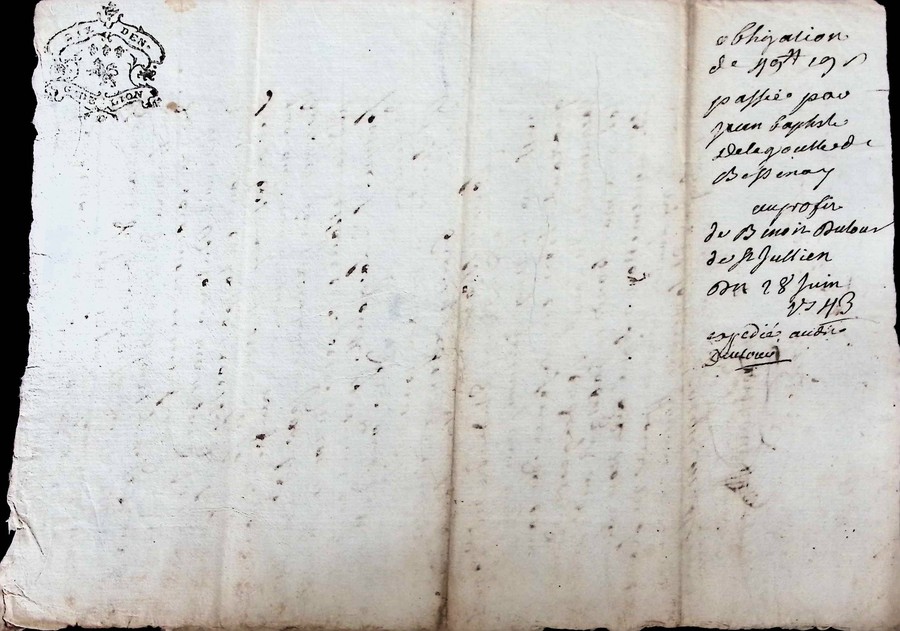 SIX DEN.
G. DE LION
obligation
de 49ᵗᵗ 19 s
passée par
jean baptiste
Delagoutte de
Bessenay
au profit
de Benoit Dutour
de St Jullien
Du 28 Juin
1743
expedié audit
Dutour